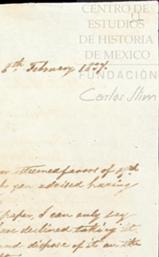 CENTRO DE
ESTUDIOS
DE HISTORIA
DE MEXICO
FUNDACIÓN
Carlos Slim
8th February 1837.
esteemed favors of
you advised having
paper, I can only say
declined taking it
and dispose of it on the